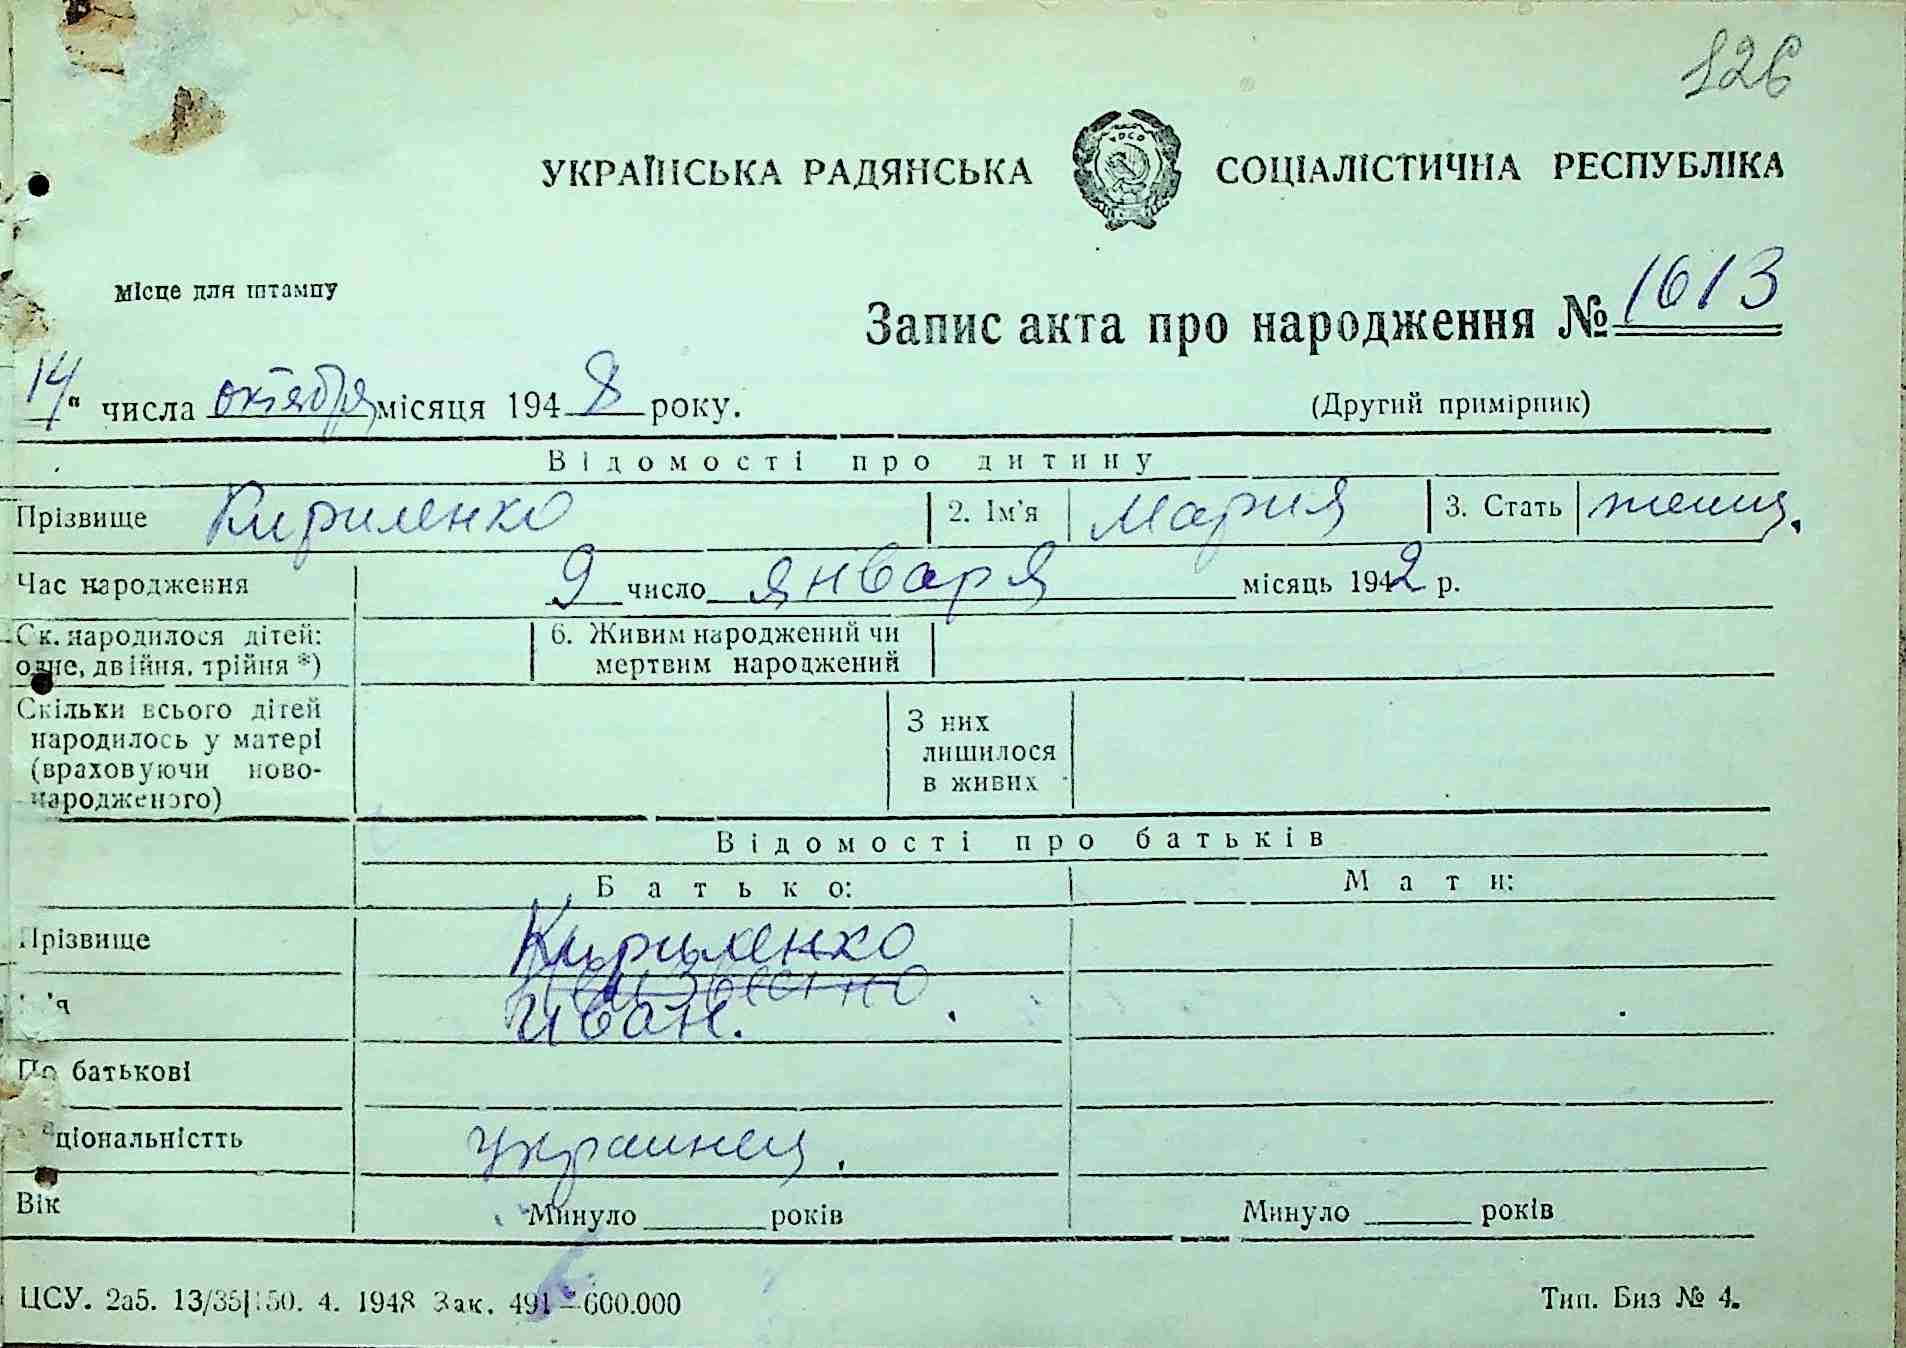 126
УКРАЇНСЬКА РАДЯНСЬКА СОЦІАЛІСТИЧНА РЕСПУБЛІКА
Місце для штампу
Запис акта про народження № 1613
14" числа октября місяця 1948 року.
(Другий примірник)
Відомості про дитину
Прізвище Кириленко 2. Ім'я Мария 3. Стать женщ.
Час народження 9 число января місяць 1942 р.
Ск. народилося дітей: одне, двійня, трійня *)
6. Живим народжений чи мертвим народжений
Скільки всього дітей
народилось у матері
(враховуючи ново-
народженого)
З них
лишилося
в живих
Відомості про батьків
Батько: Мати:
Прізвище Кириленко
неизвестно
'я Иван.
По батькові
ціональністть украинец.
Вік Минуло ______ років Минуло ______ років
ЦСУ. 2а5. 13/35|150. 4. 1948 Зак. 491—600.000
Тип. Биз № 4.